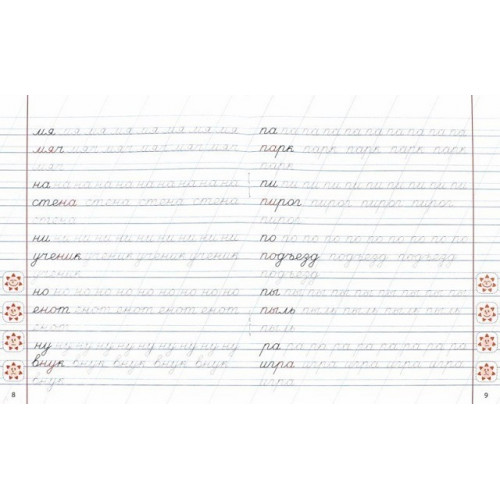 мя мя мя мя мя мя мя мя
мяч мяч мяч мяч мяч мяч
мяч
на на на на на на на на на на
стена стена стена стена стена
стена
ни ни ни ни ни ни ни ни ни
ученик ученик ученик ученик
ученик
но но но но но но но но но
енот енот енот енот енот
енот
ну ну ну ну ну ну ну ну ну
внук внук внук внук внук
внук
8
па па па па па па па па па па
парк парк парк парк парк
парк
пи пи пи пи пи пи пи пи пи пи
пирог пирог пирог пирог
пирог
по по по по по по по по по по
подъезд подъезд подъезд
подъезд
пы пы пы пы пы пы пы пы
пыль пыль пыль пыль пыль
пыль
ра ра ра ра ра ра ра ра ра
игра игра игра игра игра
игра
9